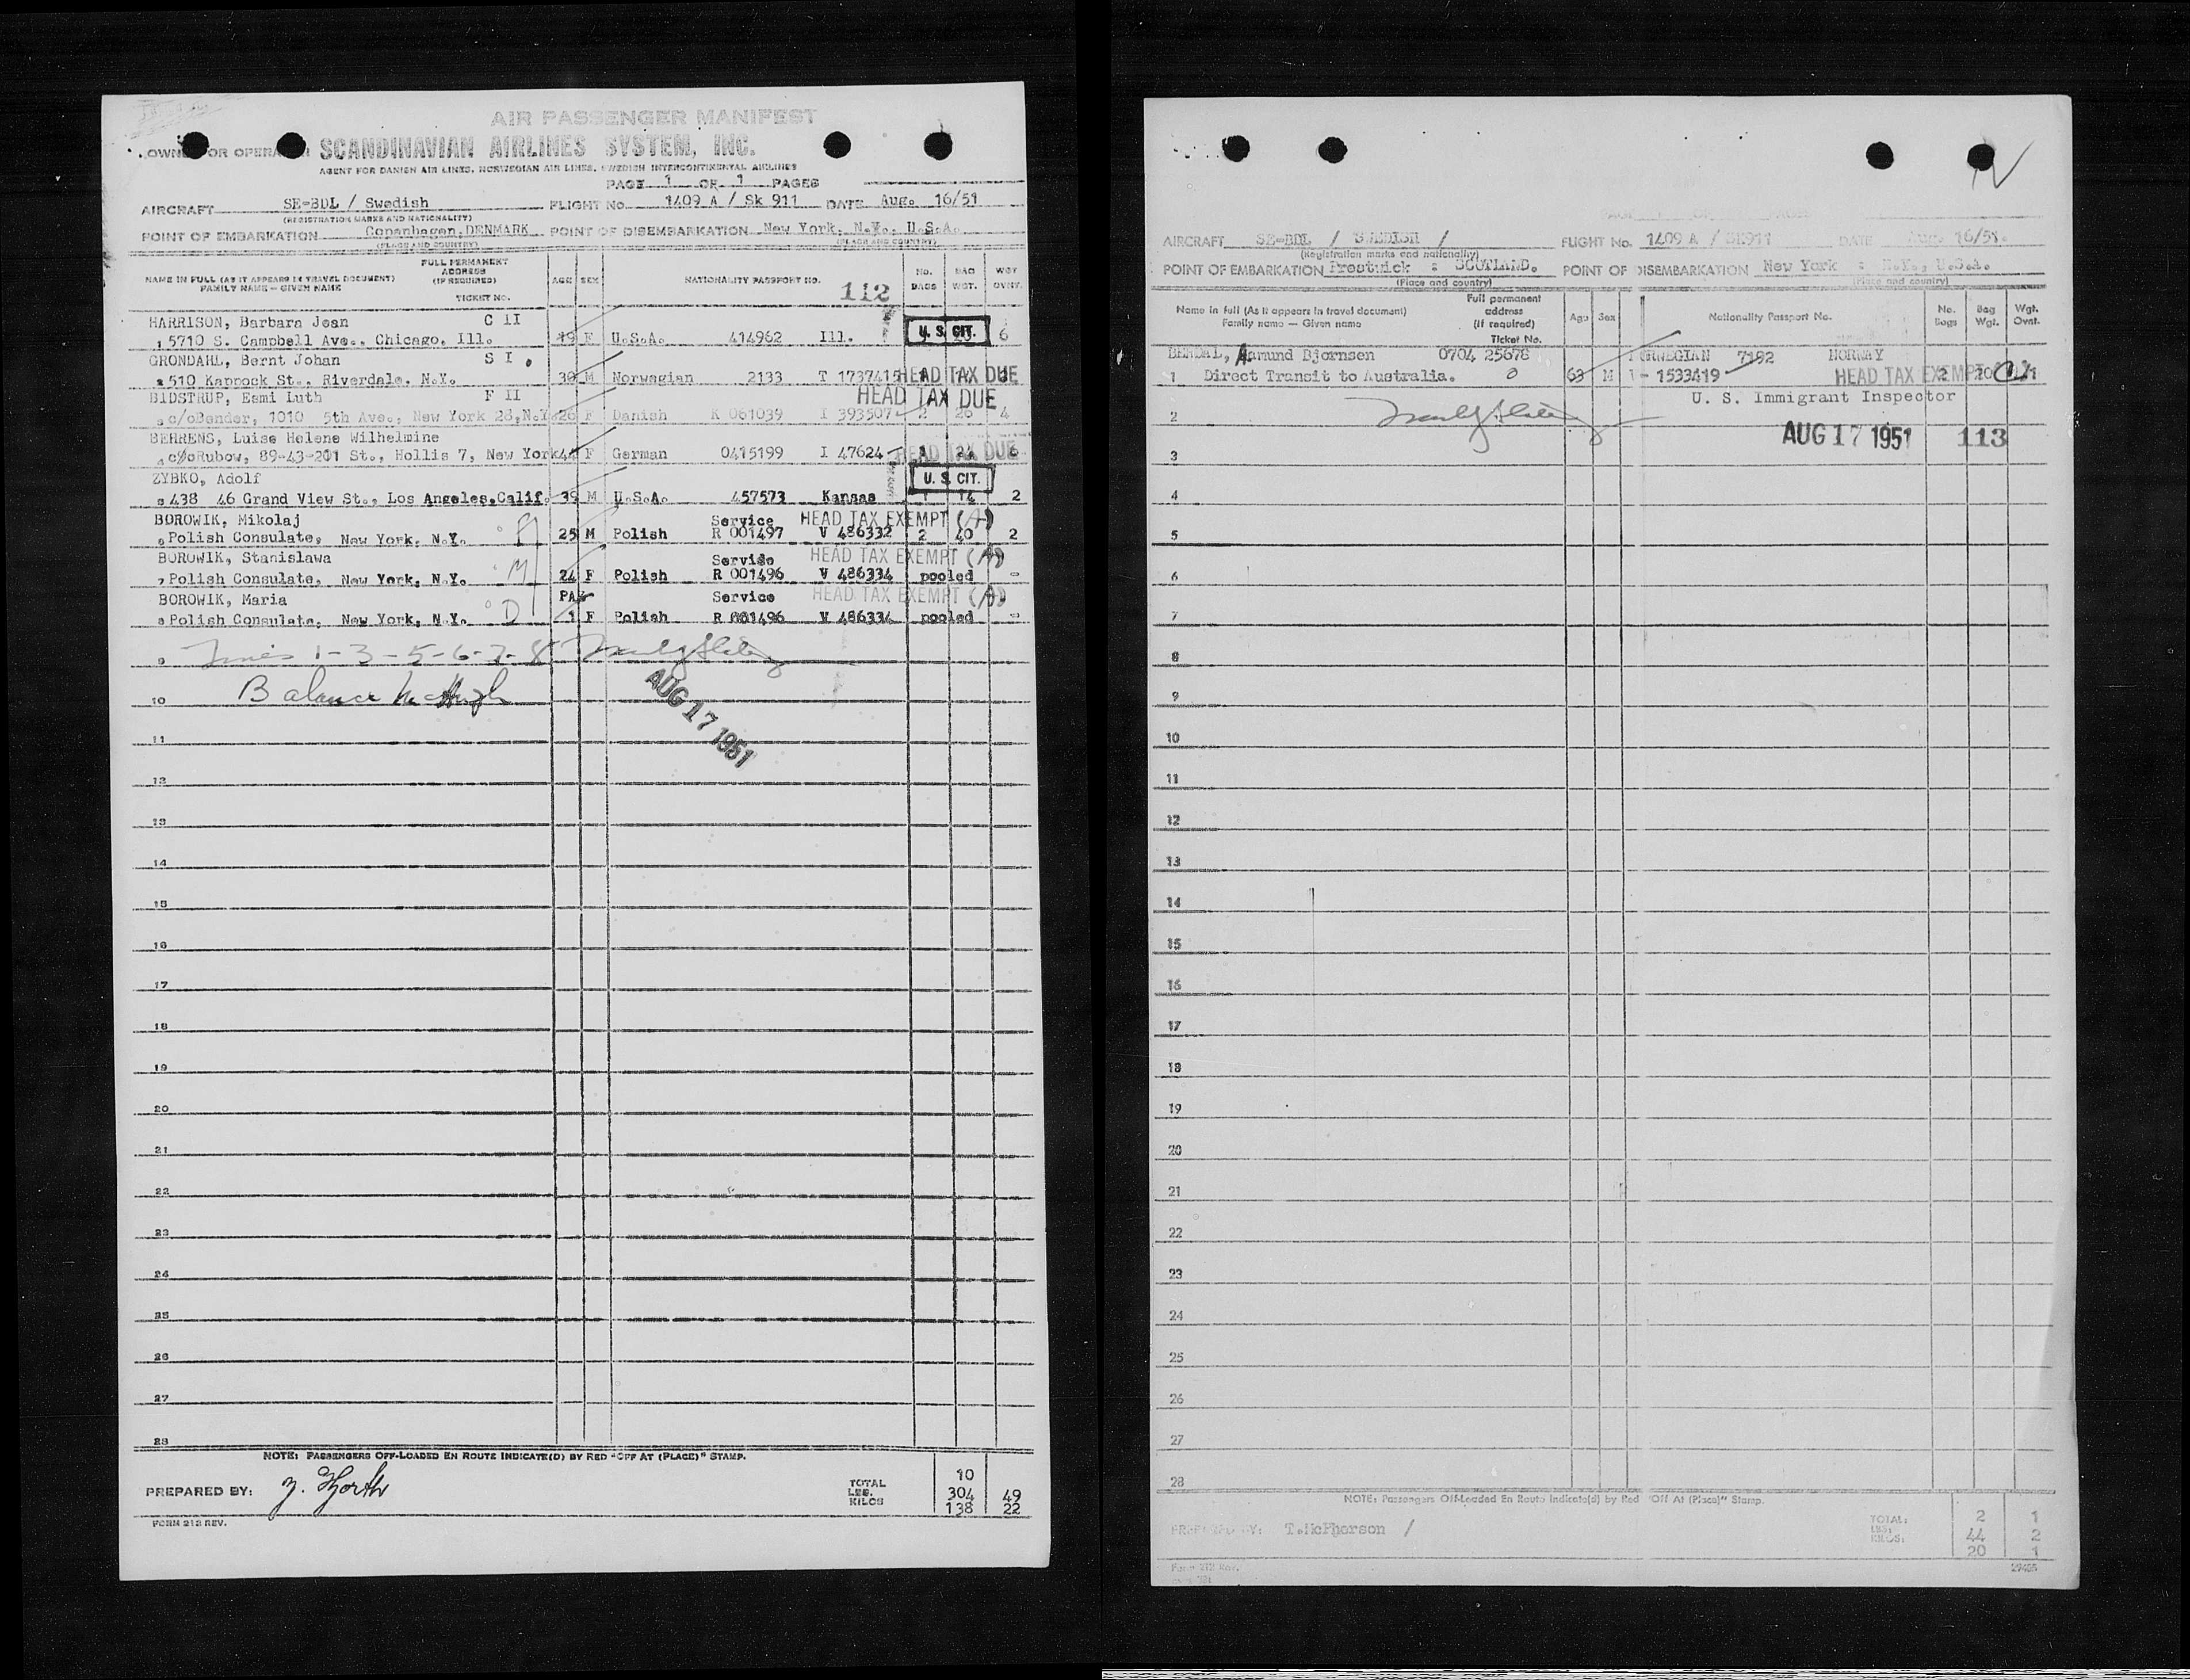 AIR PASSENGER MANIFEST
OWNER OR OPERATOR SCANDINAVIAN AIRLINES SYSTEM, INC.
AGENT FOR DANISH AIR LINES, NORWEGIAN AIR LINES, SWEDISH INTERCONTINENTAL AIRLINES
PAGE 1 OF 1 PAGES
AIRCRAFT SE-BDL / Swedish FLIGHT No. 1409 A / Sk 911 DATE Aug. 16/51
(REGISTRATION MARKS AND NATIONALITY)
POINT OF EMBARKATION Copenhagen, DENMARK POINT OF DISEMBARKATION New York, N.Y., U.S.A.
(PLACE AND COUNTRY) (PLACE AND COUNTRY)
NAME IN FULL (AS IT APPEARS IN TRAVEL DOCUMENT) FAMILY NAME - GIVEN NAME FULL PERMANENT ADDRESS (IF REQUIRED) TICKET NO. AGE SEX NATIONALITY PASSPORT NO. NO. BAGS BAG WGT. WGT OVNT.
112
HARRISON, Barbara Jean C II
1 5710 S. Campbell Ave., Chicago, Ill. 19 F U.S.A. 414962 Ill. U. S. CIT. 6
GRONDAHL, Bernt Johan S I
2 510 Kappock St., Riverdale, N.Y. 30 M Norwegian 2133 T 1737415 HEAD TAX DUE
BIDSTRUP, Esmi Luth F II HEAD TAX DUE
3 c/oBender, 1010 5th Ave., New York 28, N.Y. 26 F Danish K 061039 I 393507 2 26 4
BEHRENS, Luise Helene Wilhelmine
4 c/oRubow, 89-43-201 St., Hollis 7, New York 44 F German 0415199 I 47624 HEAD TAX DUE
ZYBKO, Adolf U. S. CIT.
5 438 46 Grand View St., Los Angeles, Calif. 39 M U.S.A. 457573 Kansas 1 14 2
BOROWIK, Mikolaj Service HEAD TAX EXEMPT (A)
6 Polish Consulate, New York, N.Y. 25 M Polish R 001497 V 486332 2 40 2
BOROWIK, Stanislawa M Service HEAD TAX EXEMPT (A)
7 Polish Consulate, New York, N.Y. 24 F Polish R 001496 V 486334 pooled -
BOROWIK, Maria Service HEAD TAX EXEMPT (A)
8 Polish Consulate, New York, N.Y. D 1 F Polish R 001496 V 486334 pooled -
9 Lines 1-3-5-6-7-8
10 Balance McHugh
AUG 17 1951
11
12
13
14
15
16
17
18
19
20
21
22
23
24
25
26
27
28
NOTE: PASSENGERS OFF-LOADED EN ROUTE INDICATE(D) BY RED "OFF AT (PLACE)" STAMP.
PREPARED BY:
TOTAL 10
LBS. 304 49
KILOS 138 22
FORM 212 REV.
AIRCRAFT SE-BDL / SWEDISH / FLIGHT No. 1409 A / SK911 DATE AUG. 16/51.
(Registration marks and nationality)
POINT OF EMBARKATION Prestwick : SCOTLAND. POINT OF DISEMBARKATION New York : N.Y., U.S.A.
(Place and country) (Place and country)
Name in full (As it appears in travel document) Family name — Given name Full permanent address (if required) Ticket No. Age Sex Nationality Passport No. No. Bags Bag Wgt. Wgt. Ovnt.
BENDAL, Asmund Bjornsen 0704 25678 NORWEGIAN 7192 NORWAY
1 Direct Transit to Australia. 63 M 1533419 HEAD TAX EXEMPT 2 20 1
U. S. Immigrant Inspector
2
AUG 17 1951 113
3
4
5
6
7
8
9
10
11
12
13
14
15
16
17
18
19
20
21
22
23
24
25
26
27
28
NOTE: Passengers Off-Loaded En Route Indicate(d) by Red "Off At (Place)" Stamp.
PREPARED BY: T.McPherson /
TOTAL: 2 1
LBS: 44 2
KILOS: 20 1
Form 212 Rev.